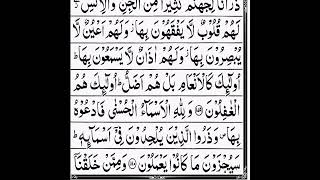 ذَرَاْنَا لِجَهَنَّمَ كَثِيْرًا مِّنَ الْجِنِّ وَالْاِنْسِ ۖ
لَهُمْ قُلُوْبٌ لَّا يَفْقَهُوْنَ بِهَا ۫ وَلَهُمْ اَعْيُنٌ لَّا
يُبْصِرُوْنَ بِهَا ۫ وَلَهُمْ اٰذَانٌ لَّا يَسْمَعُوْنَ بِهَا ؕ
اُولٰٓئِكَ كَالْاَنْعَامِ بَلْ هُمْ اَضَلُّ ؕ اُولٰٓئِكَ هُمُ
الْغٰفِلُوْنَ ﴿۱۷۹﴾ وَلِلّٰهِ الْاَسْمَآءُ الْحُسْنٰى فَادْعُوْهُ
بِهَا ۪ وَذَرُوا الَّذِيْنَ يُلْحِدُوْنَ فِيْٓ اَسْمَآئِهٖ ؕ
سَيُجْزَوْنَ مَا كَانُوْا يَعْمَلُوْنَ ﴿۱۸۰﴾ وَمِمَّنْ خَلَقْنَاۤ